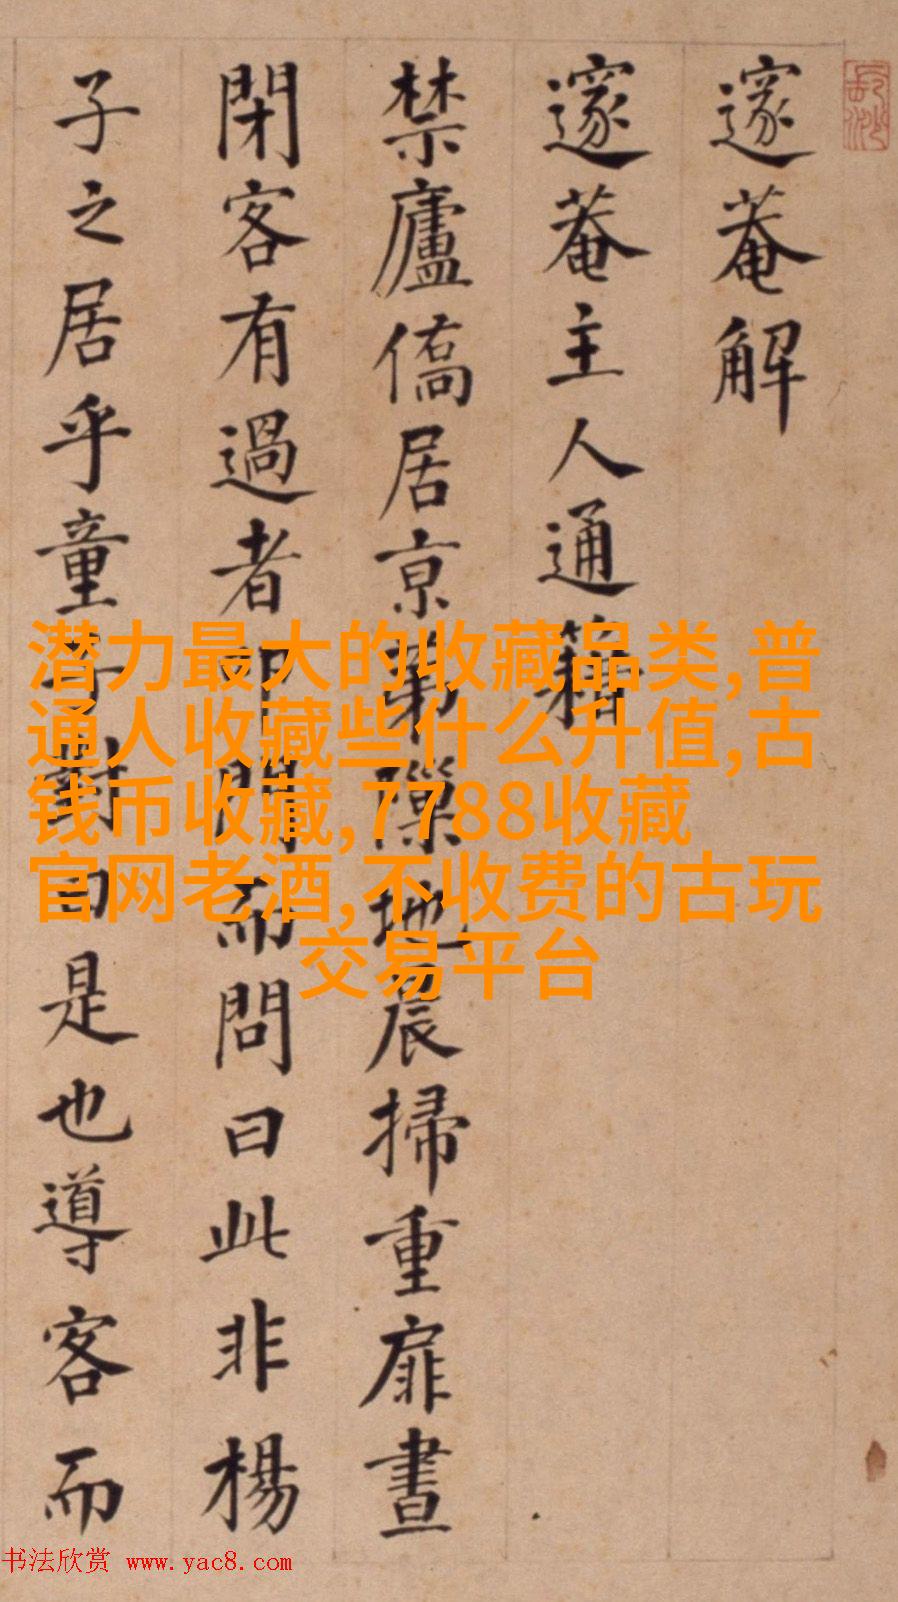 邃菴解
邃菴主人通籍
禁廬僑居京第隙地晨掃重扉晝
閉客有過者叩門而問曰此非楊
子之居乎童子對曰是也導客而
潜力最大的收藏品类,普
通人收藏些什么升值,古
钱币收藏,7788收藏
官网老酒,不收费的古玩
交易平台
书法欣赏 www.yac8.com